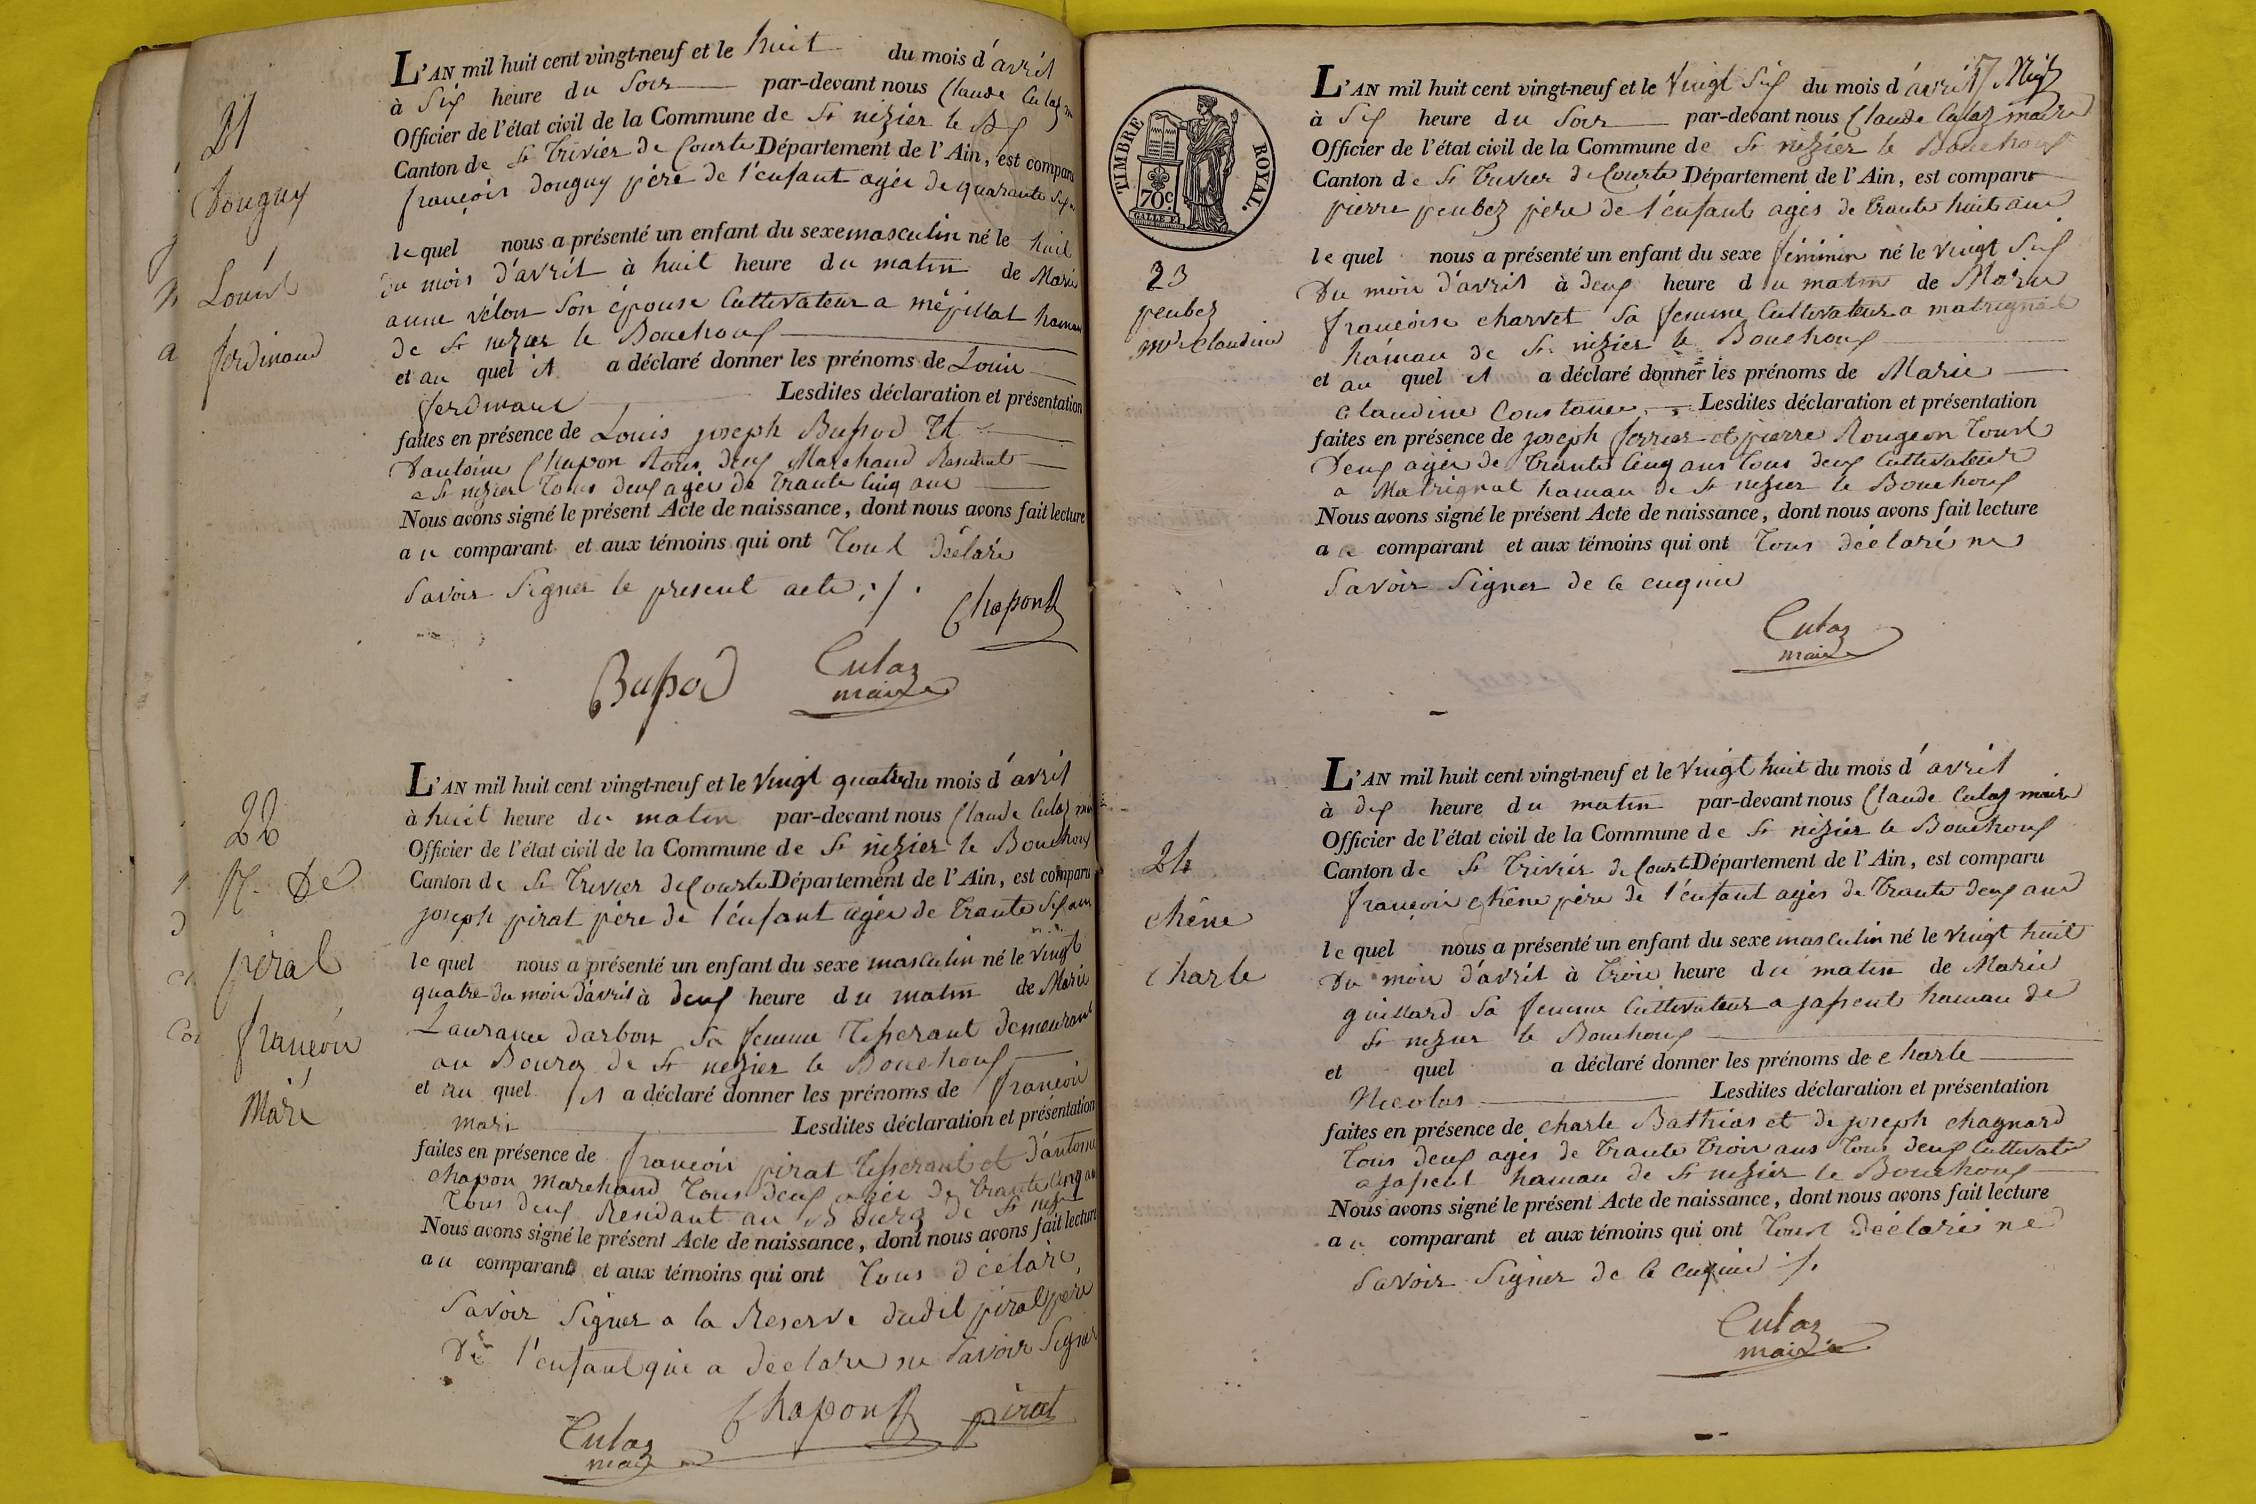 21
Douguy
Louis
ferdinand
L'AN mil huit cent vingt-neuf et le huit du mois d'avril
à Six heure du Soir par-devant nous Claude Culaz
Officier de l'état civil de la Commune de St nizier le
Canton de St Trivier de Courte Département de l'Ain, est comparu
françois douguy père de l'enfant agée de quarante
lequel nous a présenté un enfant du sexe masculin né le huit
du mois d'avril à huit heure du matin de Marie
anne vélon Son épouse Cultivateur a mépillat hameau
de St nizier le Bouchoux
et au quel il a déclaré donner les prénoms de Louis
ferdinand Lesdites déclaration et présentation
faites en présence de Louis joseph Bussod Et
Dantoine Chapon tous deux Marchand Residents
a St nizier Tous deux agée de Trante Cinq ans
Nous avons signé le présent Acte de naissance, dont nous avons fait lecture
au comparant et aux témoins qui ont Tous déclaré
Savoir Signer le present acte ./.
Chapon
Bussod
Culaz
maire
22
N. De
piral
françois
Mari
L'AN mil huit cent vingt-neuf et le Vingt quatre du mois d'avril
à huit heure du matin par-devant nous Claude Culaz
Officier de l'état civil de la Commune de St nizier le Bouchoux
Canton de St Trivier de Courte Département de l'Ain, est comparu
joseph pirat père de l'énfant agée de Trante Six ans
lequel nous a présenté un enfant du sexe masculin né le Vingt
quatre du mois d'avril à deux heure du matin de Marie
Laurance darbon Sa femme Tisserant demeurant
au Bourg de St nizier le Bouchoux
et au quel il a déclaré donner les prénoms de françois
Mari Lesdites déclaration et présentation
faites en présence de françois pirat Tisserant et d'antoine
chapon Marchand Tous deux agée de Trante Cinq an
Tous deux Residant au Bourg de St
Nous avons signé le présent Acte de naissance, dont nous avons fait lecture
au comparant et aux témoins qui ont Tous déclaré
Savoir Signer a la Reserve dudit pirat père
De l'enfant qui a declare ne Savoir Signer
Chapon
pirat
Culaz
maire
TIMBRE ROYAL.
70c
23
peubez
Mie Claudine
L'AN mil huit cent vingt-neuf et le Vingt Six du mois d'avril
à Six heure du Soir par-devant nous Claude Culaz maire
Officier de l'état civil de la Commune de St nizier le Bouchoux
Canton de St Trivier de Courte Département de l'Ain, est comparu
pierre peubez père de l'énfant agés de trante huit ans
lequel nous a présenté un enfant du sexe féminin né le Vingt Six
Du mois d'avril à deux heure du matin de Marie
françoise charvet Sa femme Cultivateur a matrignat
hameau de St nizier le Bouchoux
et au quel il a déclaré donner les prénoms de Marie
Claudine Constance Lesdites déclaration et présentation
faites en présence de joseph ferrier et pierre Rougeon Tous
Deux agée de Trante Cinq ans Tous deux Cultivateur
a Matrignat hameau de St nizier le Bouchoux
Nous avons signé le présent Acte de naissance, dont nous avons fait lecture
au comparant et aux témoins qui ont Tous déclaré ne
Savoir Signer de ce enquis
Culaz
maire
24
chêne
charle
L'AN mil huit cent vingt-neuf et le Vingt huit du mois d'avril
à dix heure du matin par-devant nous Claude Culaz maire
Officier de l'état civil de la Commune de St nizier le Bouchoux
Canton de St Trivier de Courte Département de l'Ain, est comparu
françois chêne père de l'énfant agés de Trante deux ans
lequel nous a présenté un enfant du sexe masculin né le Vingt huit
Du mois d'avril à trois heure du matin de Marie
guillard Sa femme Cultivateur a jassent hameau de
St nizier le Bouchoux
et quel a déclaré donner les prénoms de charle
Nicolas Lesdites déclaration et présentation
faites en présence de charle Bathias et de joseph chagnard
Tous deux agés de Trante Trois ans Tous deux Cultivate
a jassent hameau de St nizier le Bouchoux
Nous avons signé le présent Acte de naissance, dont nous avons fait lecture
au comparant et aux témoins qui ont Tous déclaré ne
Savoir Signer de ce enquis ./.
Culaz
maire